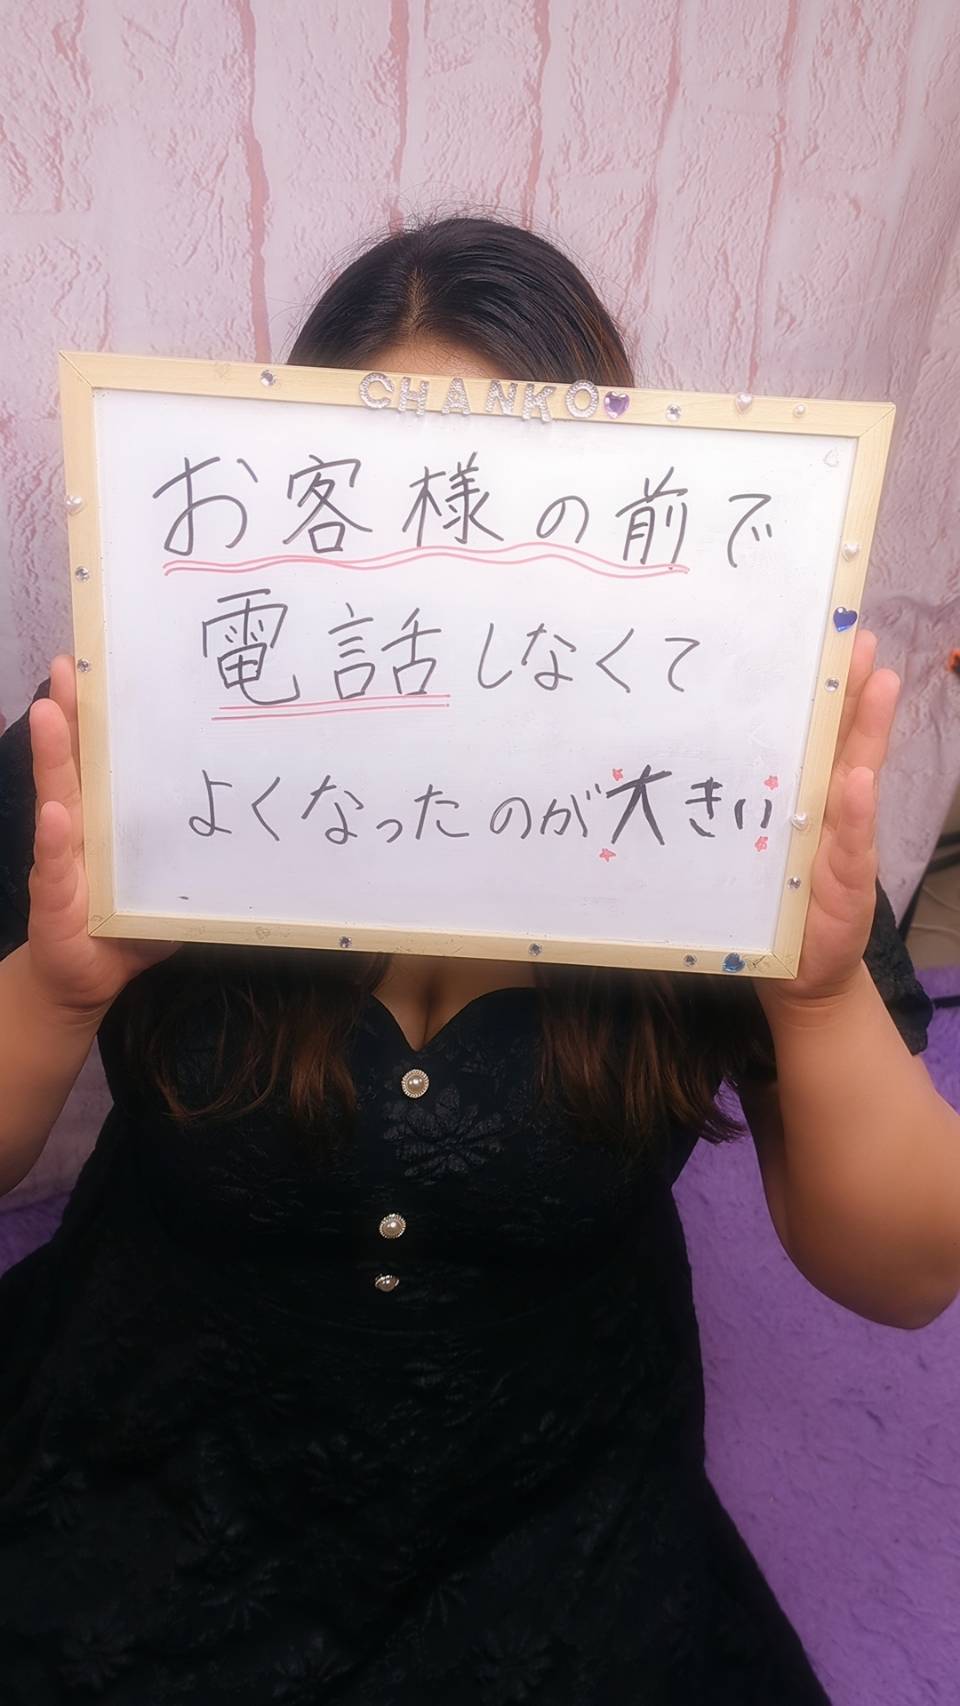 CHANKO
お客様の前で
電話しなくて
よくなったのが大きい